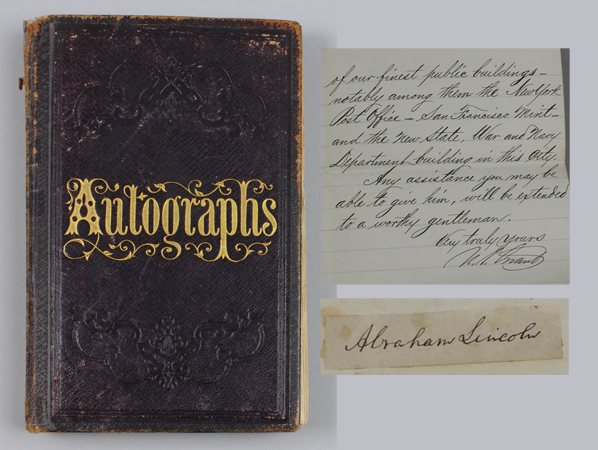 Autographs
of our finest public buildings—
notably among them the New York
Post Office — San Francisco Mint—
and the New State, War and Navy
Department building in this City.
Any assistance you may be
able to give him, will be extended
to a worthy gentleman.
Very truly yours
U.S. Grant
Abraham Lincoln